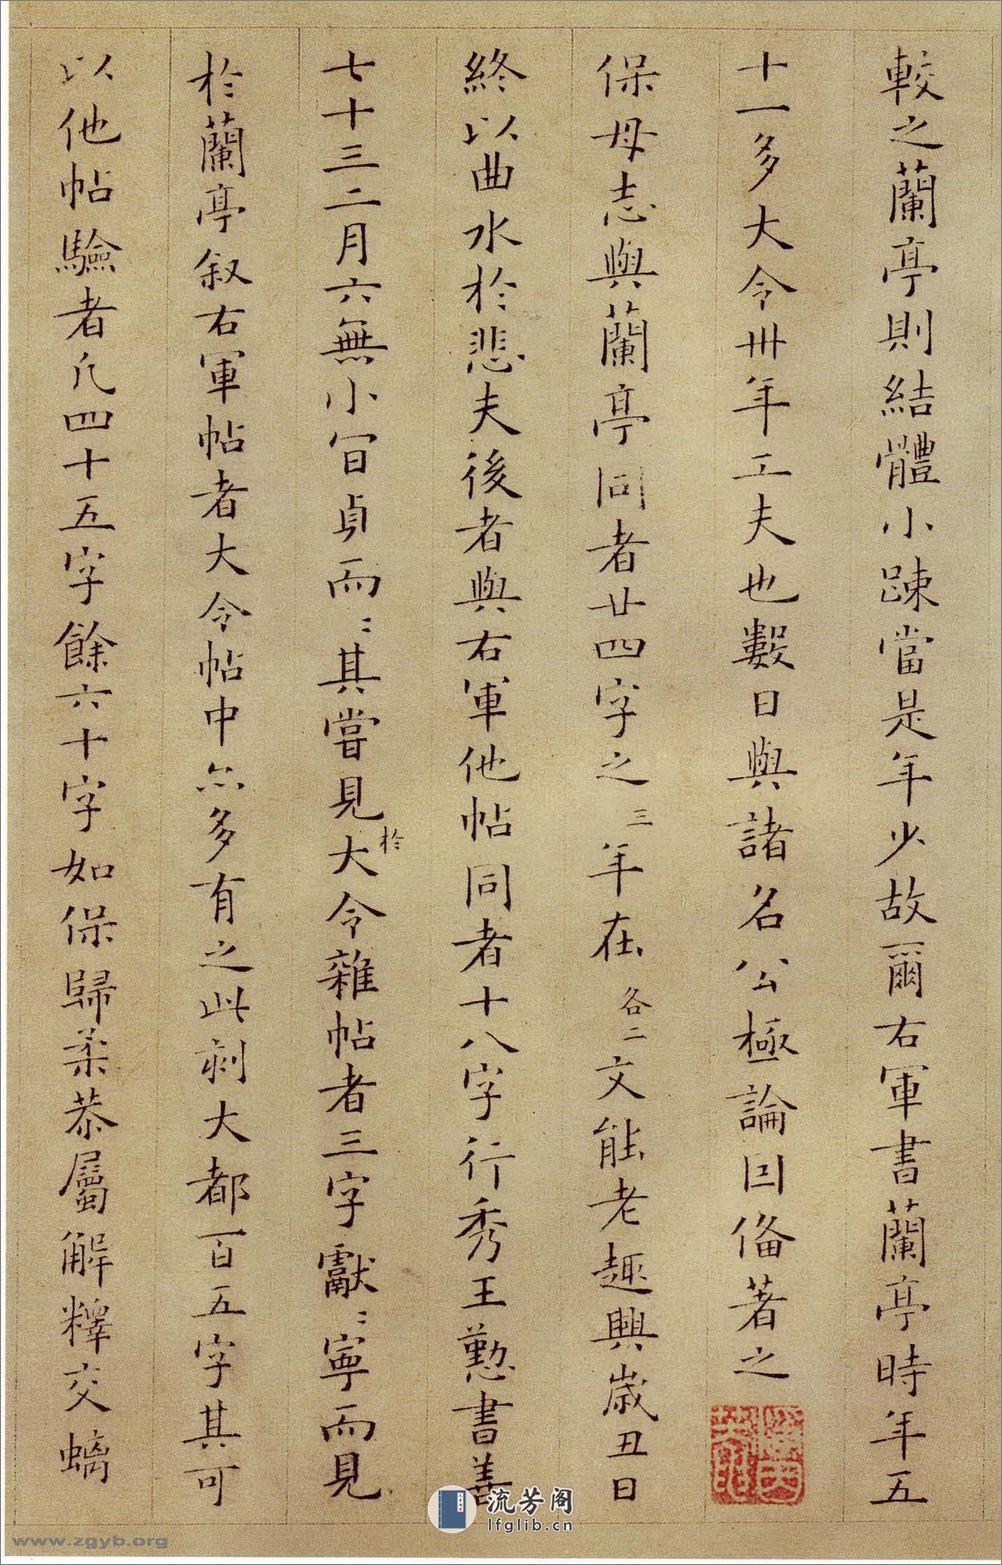 較之蘭亭則結體小踈當是年少故爾右軍書蘭亭時年五
十一多大令卅年工夫也數日與諸名公極論因俻著之
保母志與蘭亭同者廿四字之三年在各二文能老趣興歲丑日
終以曲水於悲夫後者與右軍他帖同者十八字行秀王懃書善
七十三二月六無小㝐貞而〻其嘗見於大令雜帖者三字獻〻寧而見
於蘭亭叙右軍帖者大令帖中亦多有之此刻大都百五字其可
以他帖驗者凢四十五字餘六十字如保歸柔恭屬解釋交螭
流芳阁
lfglib.cn
www.zgyb.org